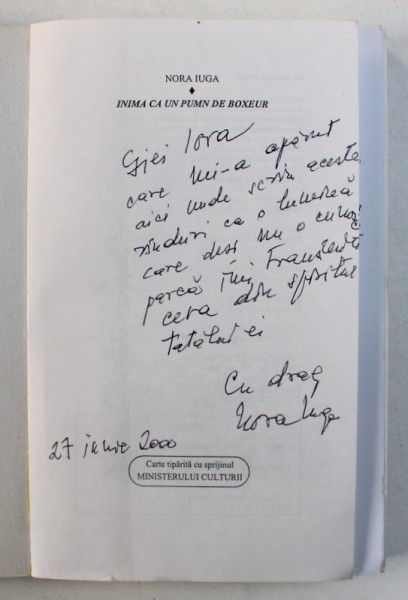 NORA IUGA
♦
INIMA CA UN PUMN DE BOXEUR
Iora
care mi-a apărut
aici unde scriu aceste
rînduri ca o
care deși nu o
parcă îmi transmite
ceva din spiritul
tatălui ei
Cu drag
Nora Iuga
27 iunie 2000
Carte tipărită cu sprijinul
MINISTERULUI CULTURII